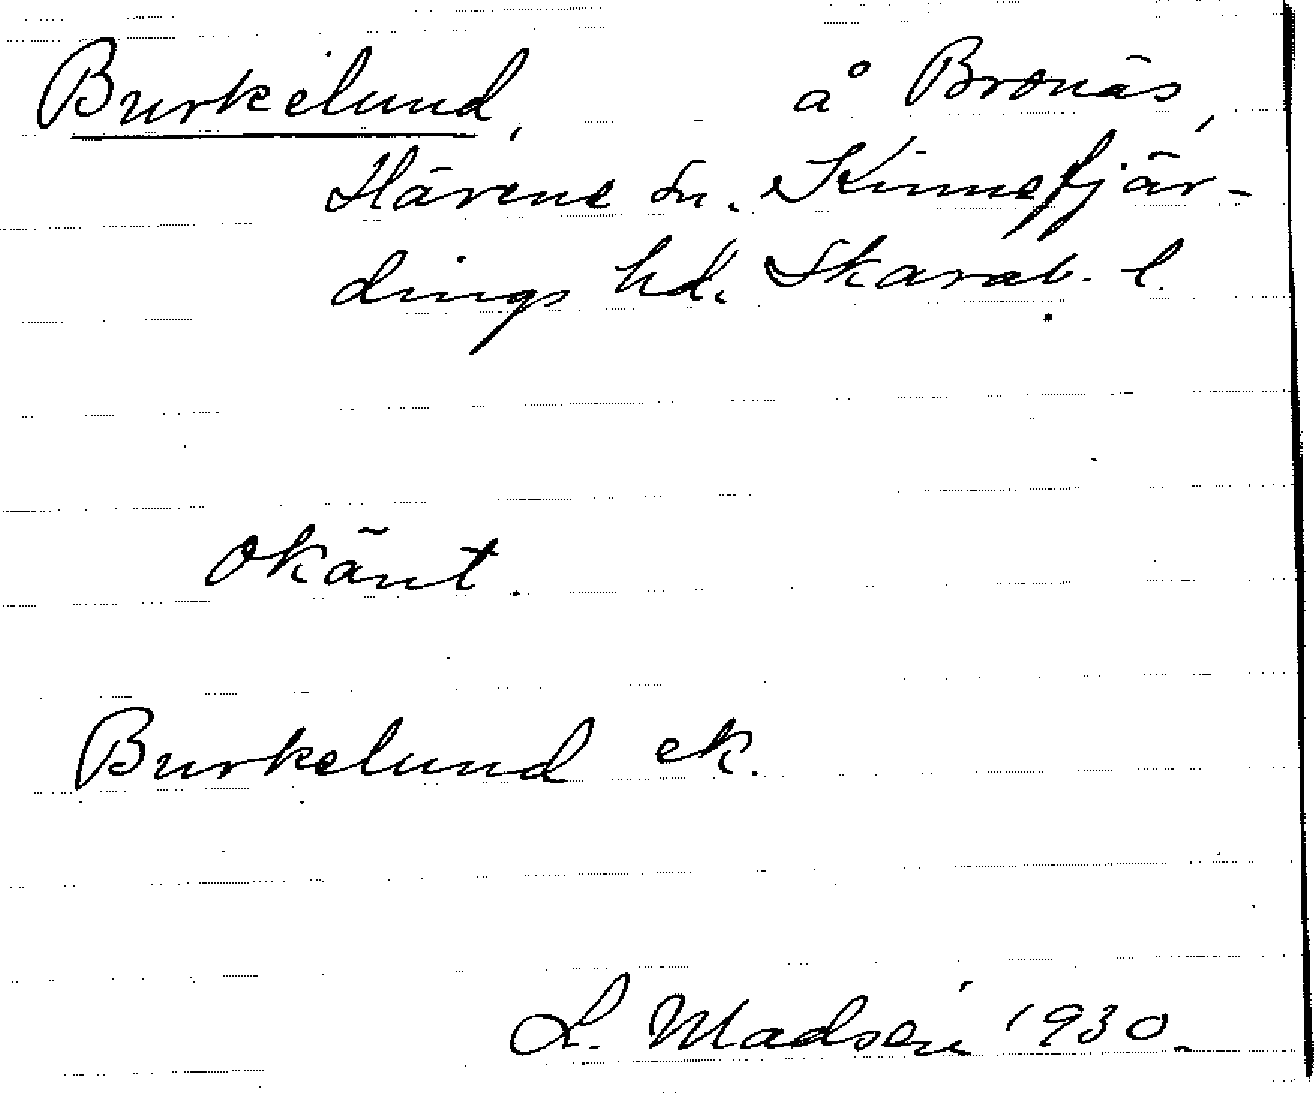 Burkelund, å Bronäs,
Härene sn. Kinnefjär-
dings hd. Skarab. l.
Okänt.
Burkelund ek.
L. Madsén 1930.